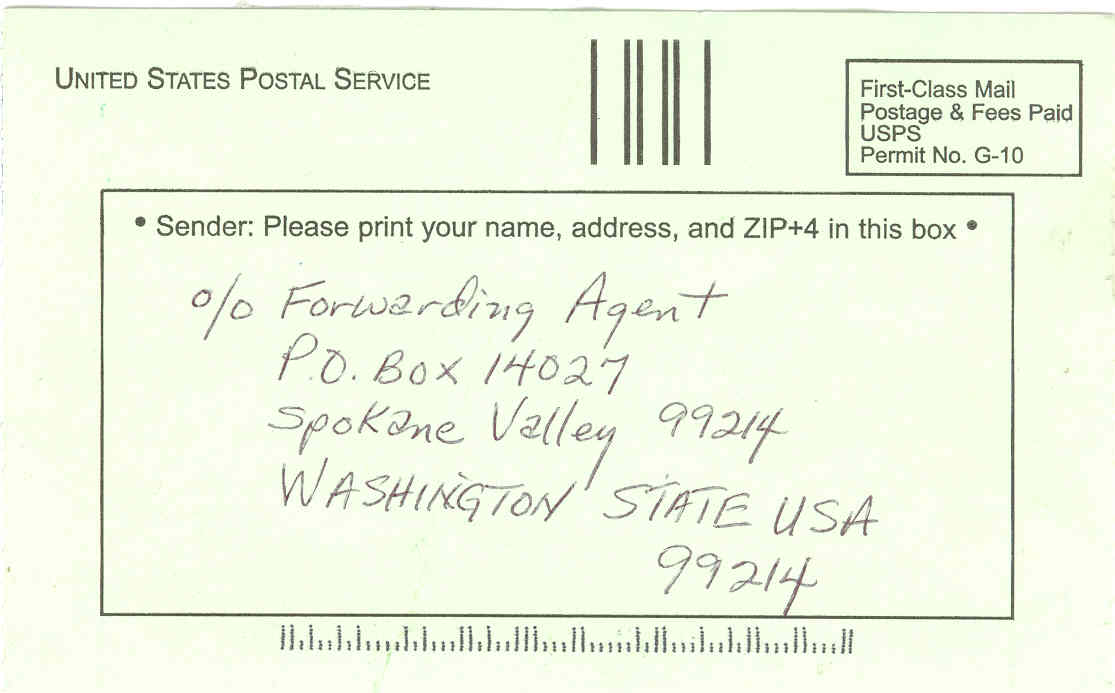 UNITED STATES POSTAL SERVICE
First-Class Mail
Postage & Fees Paid
USPS
Permit No. G-10
• Sender: Please print your name, address, and ZIP+4 in this box •
o/o Forwarding Agent
P.O. Box 14027
Spokane Valley 99214
WASHINGTON STATE USA
99214